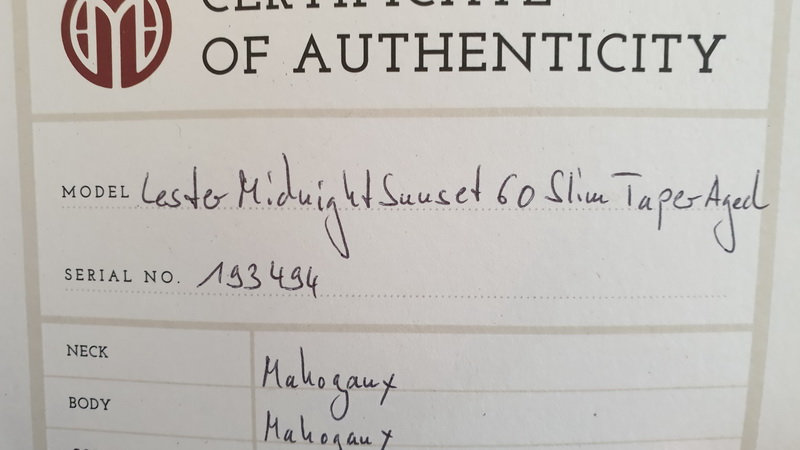 CERTIFICATE
OF AUTHENTICITY
MODEL Lester Midnight Sunset 60 Slim Taper Aged
SERIAL NO. 193494
NECK Mahogany
BODY Mahogany